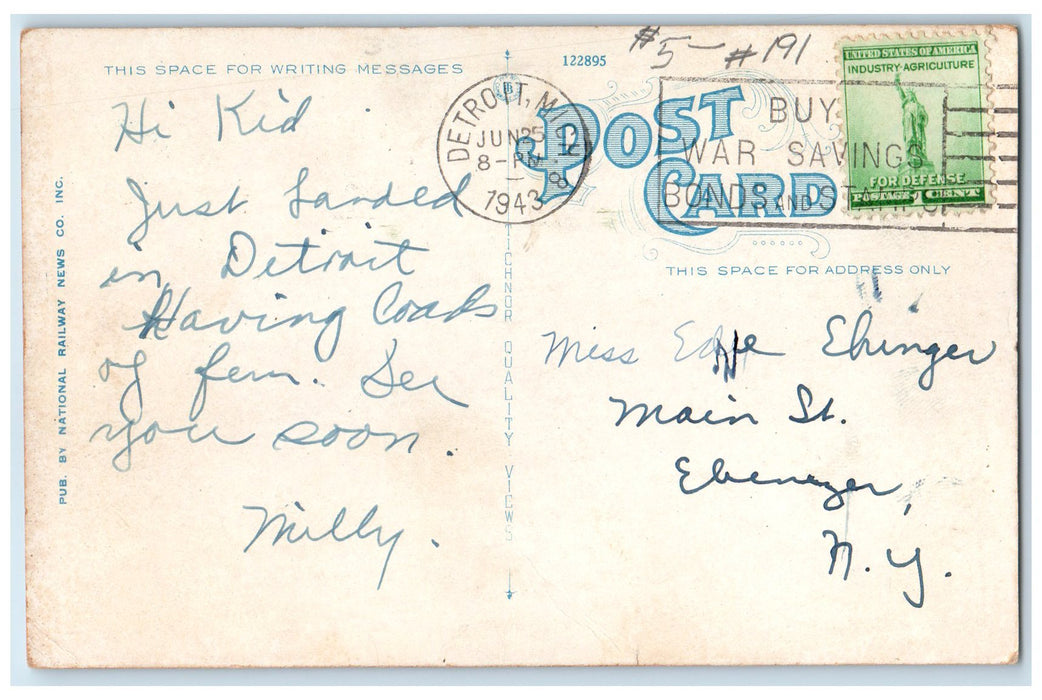 #5- #191
THIS SPACE FOR WRITING MESSAGES
122895
POST CARD
Hi Kid
Just Landed
in Detroit
Having Loads
of fun. See
you soon.
Milly.
PUB. BY NATIONAL RAILWAY NEWS CO. INC.
TICHNOR QUALITY VIEWS
DETROIT, MICH
JUN 25
8-PM
1943
BUY
WAR SAVINGS
BONDS AND STAMPS
UNITED STATES OF AMERICA
INDUSTRY·AGRICULTURE
FOR DEFENSE
POSTAGE 1 CENT
THIS SPACE FOR ADDRESS ONLY
Miss Ehinger
Main St.
Ebenezer,
N.Y.